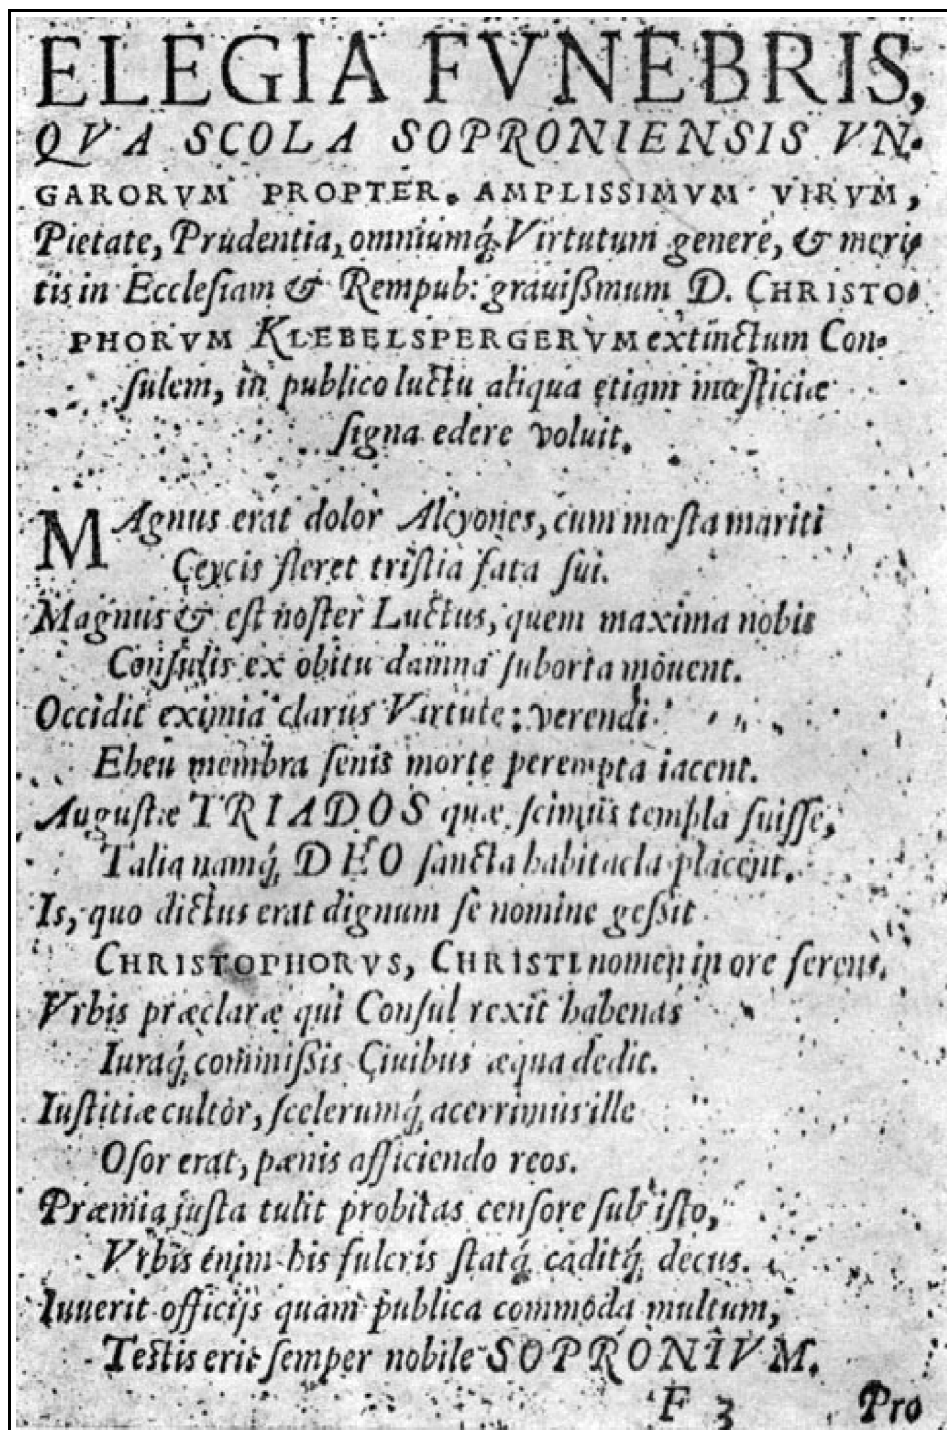 ELEGIA FVNEBRIS,
QVA SCOLA SOPRONIENSIS VN-
GARORVM PROPTER. AMPLISSIMVM VIRVM,
Pietate, Prudentia, omniumq́; Virtutum genere, & meri-
tis in Eccleſiam & Rempub: grauiſsmum D. CHRISTO-
PHORVM KLEBELSPERGERVM extinctum Con-
ſulem, in publico luctu aliqua etiam mœſticiæ
ſigna edere voluit.
MAgnus erat dolor Alcyones, cum mœſta mariti
Ceycis fleret triſtia fata ſui.
Magnus & eſt noſter Luctus, quem maxima nobis
Conſulis ex obitu damna ſuborta mouent.
Occidit eximia clarus Virtute: verendi
Eheu membra ſenis morte perempta iacent.
Auguſtæ TRIADOS quæ ſcimus templa fuiſſe,
Talia namq́; DEO ſancta habitacla placent.
Is, quo dictus erat dignum ſe nomine geſsit
CHRISTOPHORVS, CHRISTI nomen in ore ferens.
Vrbis præclaræ qui Conſul rexit habenas
Iuraq́; commiſsis Ciuibus æqua dedit.
Iuſtitiæ cultor, ſcelerumq́; acerrimus ille
Oſor erat, pænis afficiendo reos.
Præmia juſta tulit probitas cenſore ſub iſto,
Vrbis enim his fulcris ſtatq́; caditq́; decus.
Iuuerit officijs quam publica commoda multum,
Teſtis erit ſemper nobile SOPRONIVM.
F 3 Pro